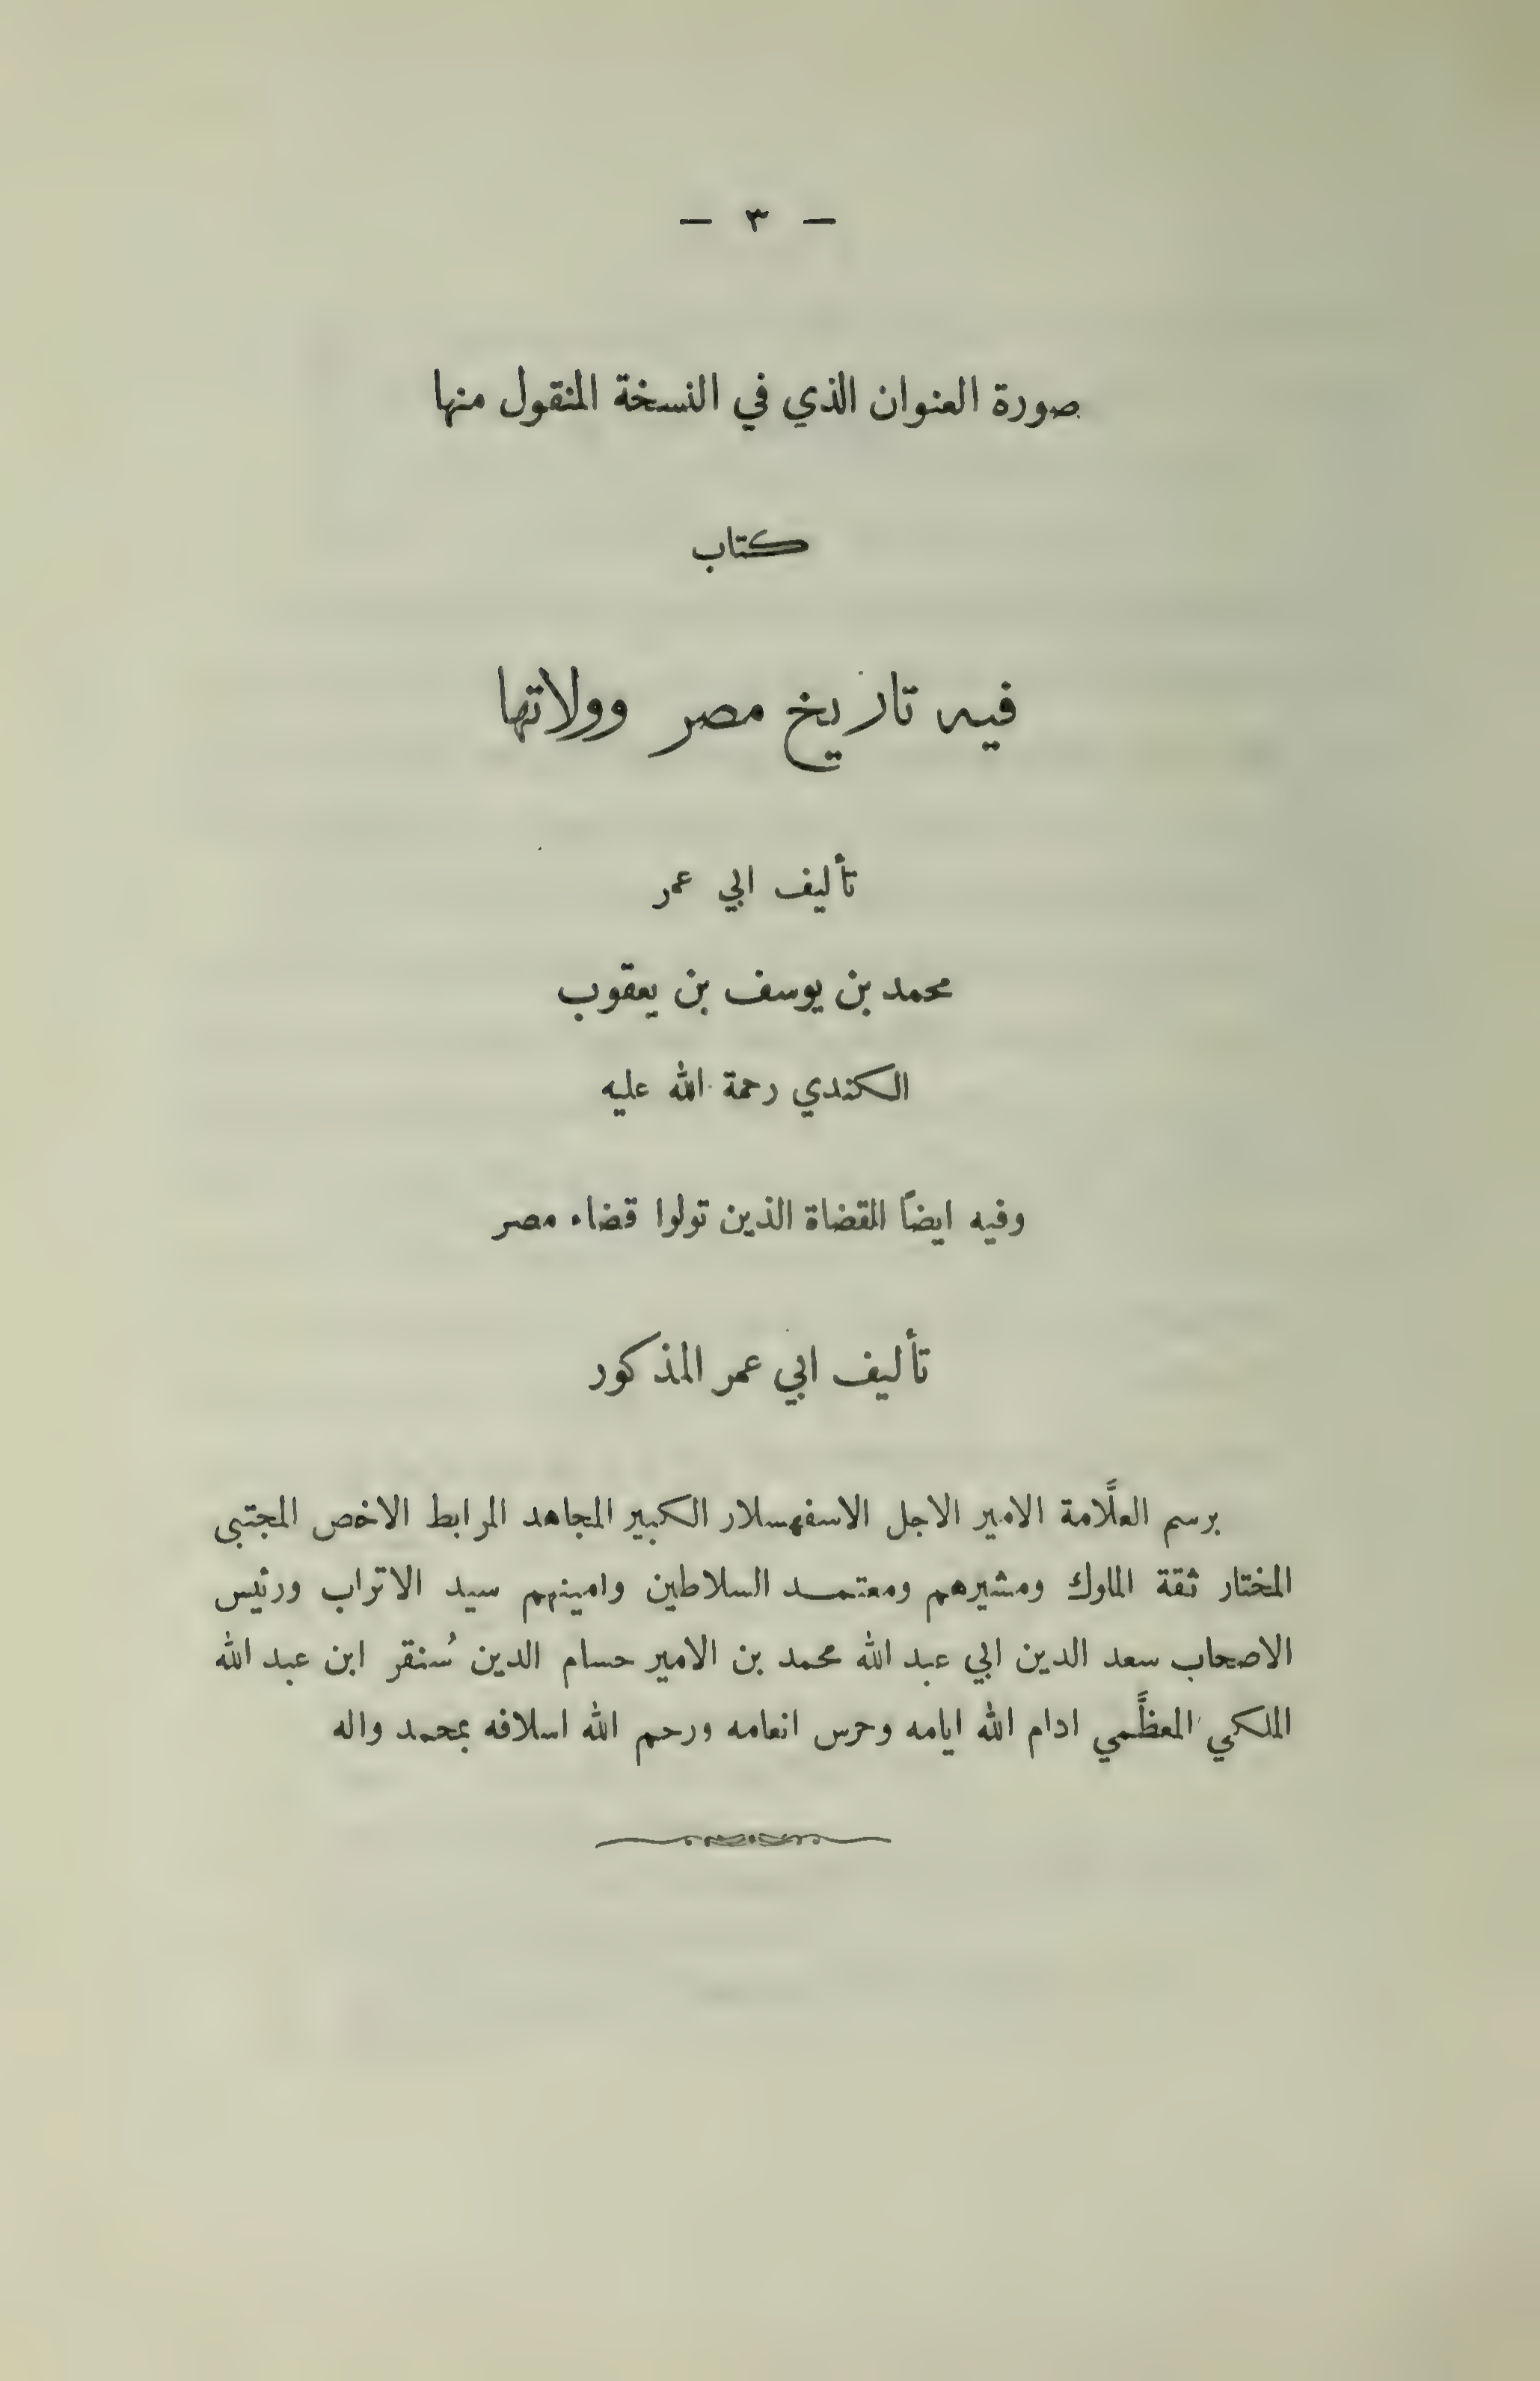 — ٣ —
صورة العنوان الذي في النسخة المنقول منها
كتاب
فيه تاريخ مصر وولاتها
تأليف ابي عمر
محمد بن يوسف بن يعقوب
الكندي رحمة الله عليه
وفيه ايضاً القضاة الذين تولوا قضاء مصر
تأليف ابي عمر المذكور
برسم العلَّامة الامير الاجل الاسفهسلار الكبير المجاهد المرابط الاخص المجتبى
المختار ثقة الملوك ومشيرهم ومعتمد السلاطين وامينهم سيد الاتراب ورئيس
الاصحاب سعد الدين ابي عبد الله محمد بن الامير حسام الدين سُنقر ابن عبد الله
الملكي المعظَّمي ادام الله ايامه وحرس انعامه ورحم الله اسلافه بمحمد واله